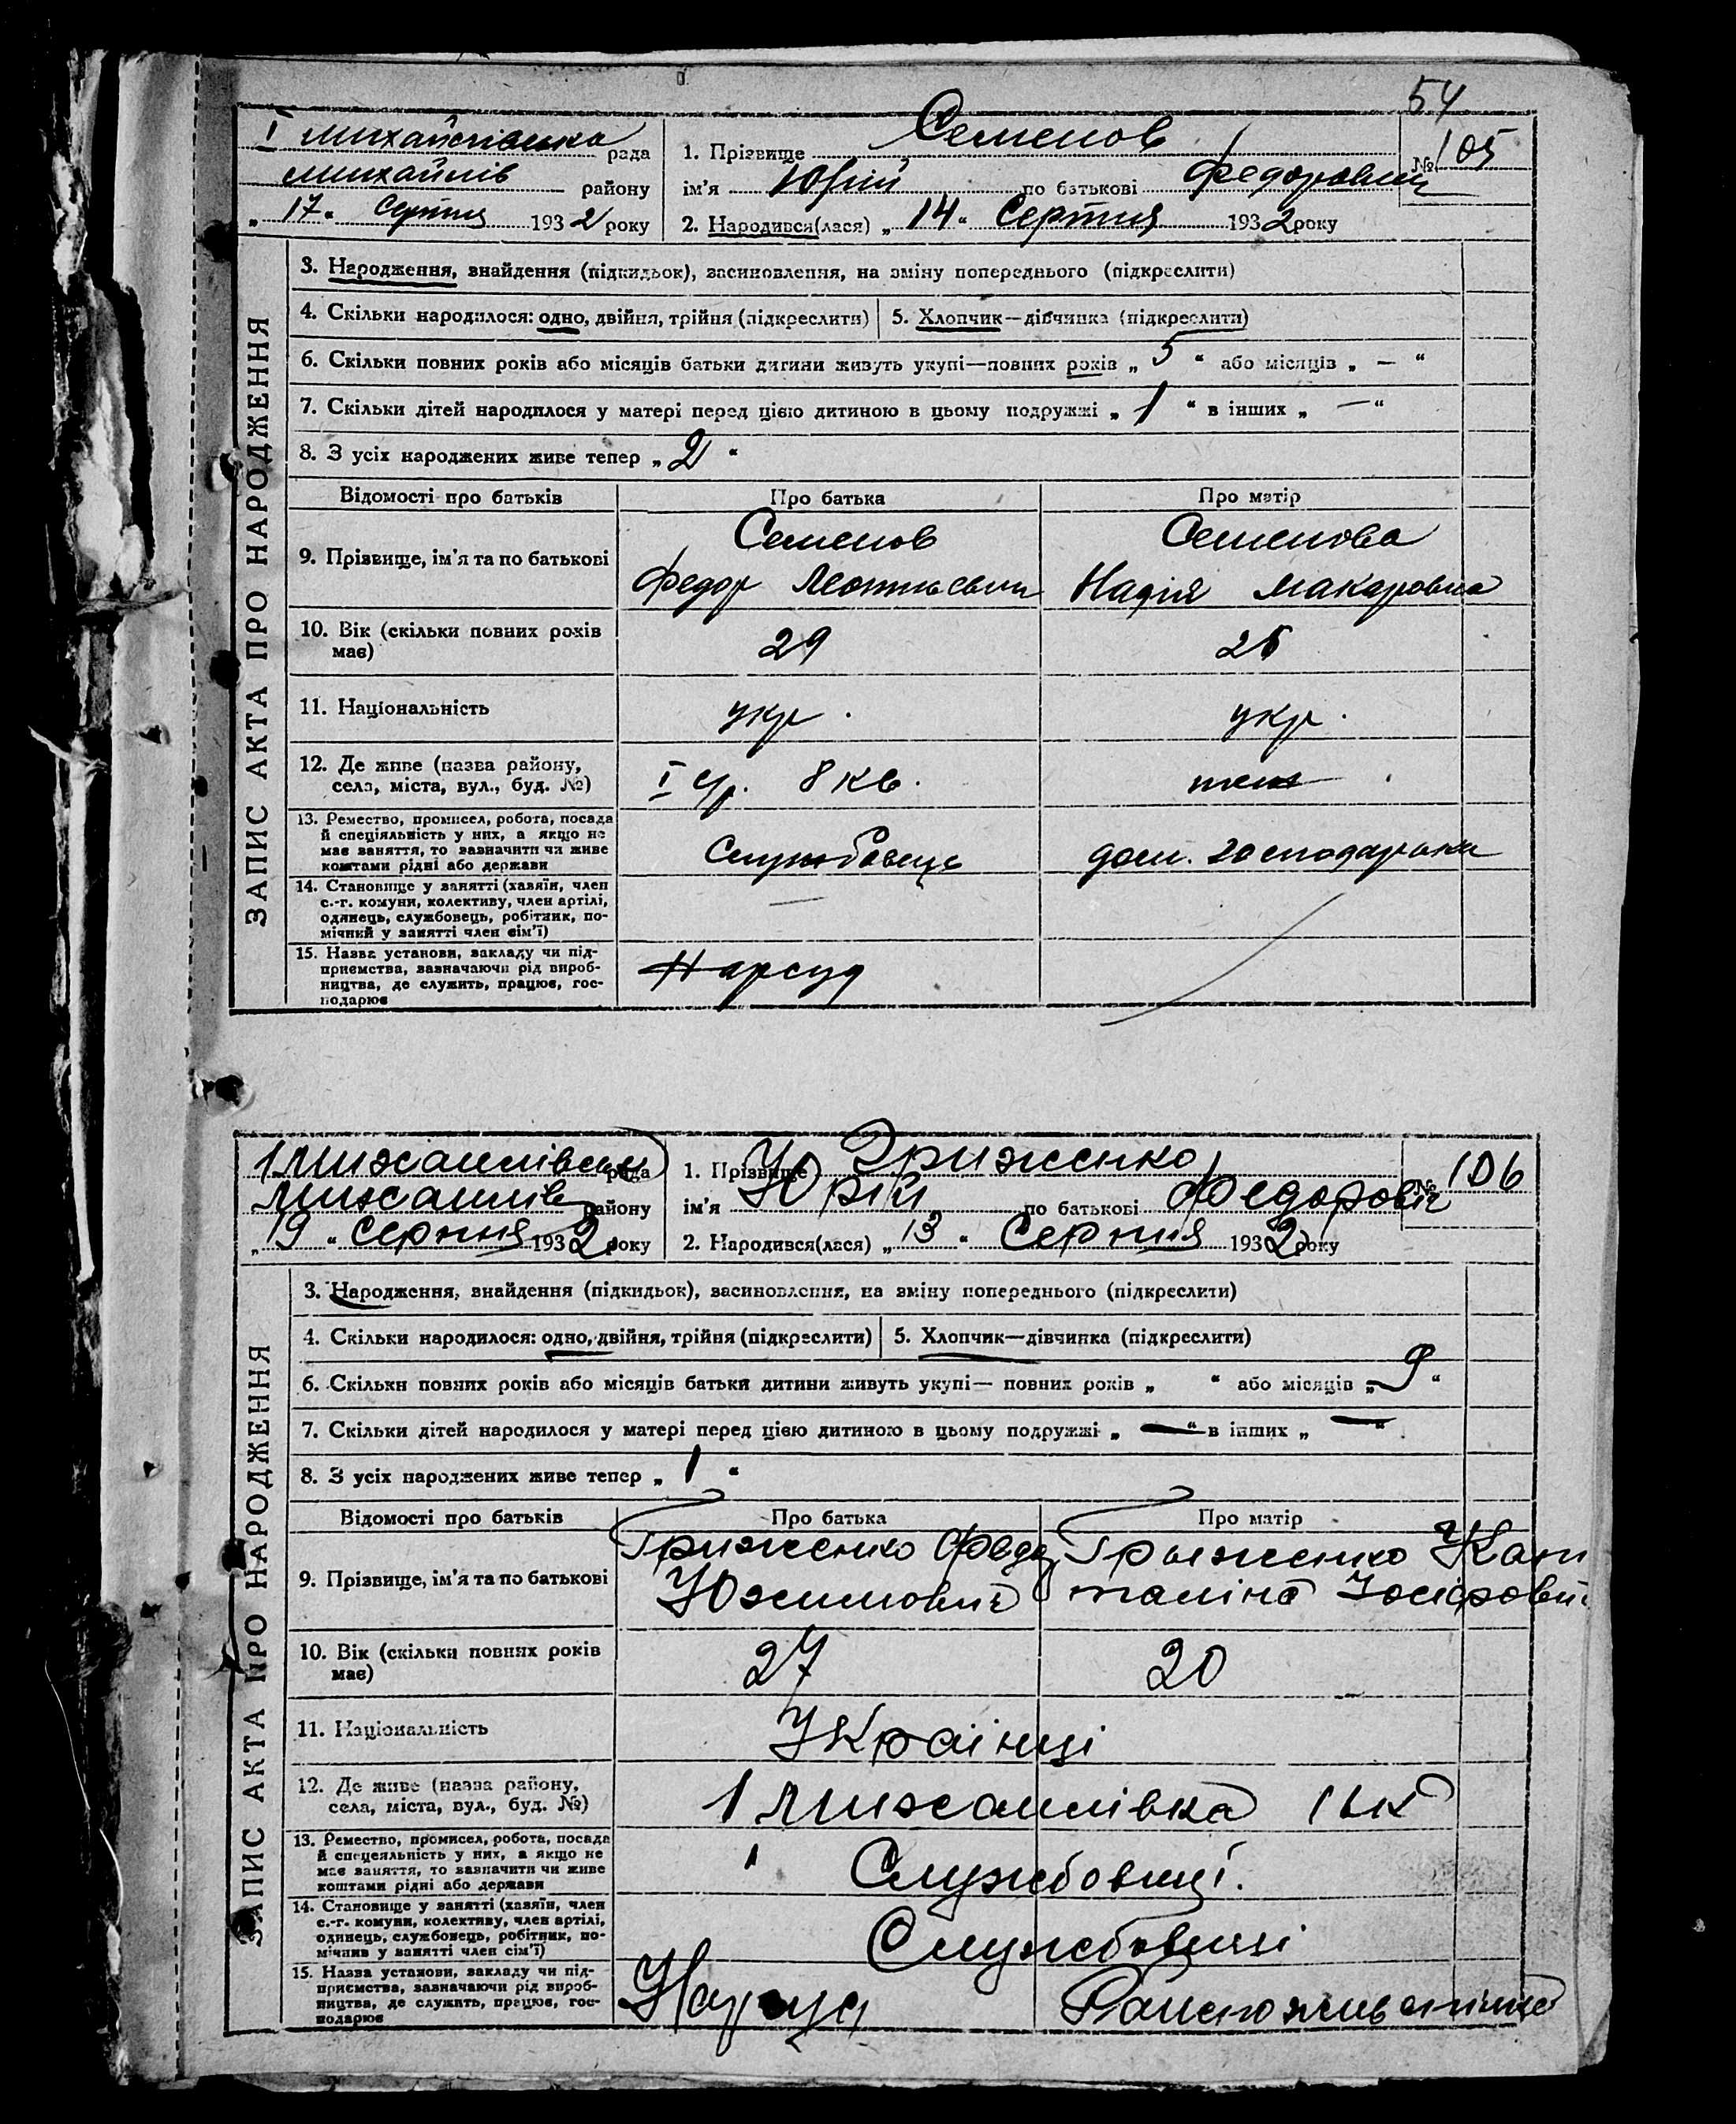 54
I Михайлівська рада
Михайлів району
„ 17 “ Серпня 1932 року
1. Прізвище Семенов
№ 105
ім'я Юрій по батькові Федорович
2. Народився(лася) „ 14 “ Серпня 1932 року
ЗАПИС АКТА ПРО НАРОДЖЕННЯ
3. Народження, знайдення (підкидьок), засиновлення, на зміну попереднього (підкреслити)
4. Скільки народилося: одно, двійня, трійня (підкреслити) 5. Хлопчик—дівчинка (підкреслити)
6. Скільки повних років або місяців батьки дитини живуть укупі—повних років „ 5 “ або місяців „ — “
7. Скільки дітей народилося у матері перед цією дитиною в цьому подружжі „ 1 “ в інших „ — “
8. З усіх народжених живе тепер „ 2 “
Відомості про батьків Про батька Про матір
9. Прізвище, ім'я та по батькові
Семенов
Федор Леонтьевич
Семенова
Надія Макаровна
10. Вік (скільки повних років
має)
29
11. Національність укр. укр.
12. Де живе (назва району,
села, міста, вул., буд. №)
8 кв.
13. Ремество, промисел, робота, посада
й спеціяльність у них, а якщо не
має заняття, то зазначити чи живе
коштами рідні або держави
Службовець
дом. господарька
14. Становище у занятті (хазяїн, член
с.-г. комуни, колективу, член артілі,
одинець, службовець, робітник, по-
мічний у занятті член сім'ї)
—
15. Назва установи, закладу чи під-
приємства, зазначаючи рід вироб-
ництва, де служить, працює, гос-
подарює
Нарсуд
1 Михайлівська рада
Михайлів району
„ 19 “ Серпня 1932 року
1. Прізвище Гриженко
№ 106
ім'я Юрій по батькові Федоровіч
2. Народився(лася) „ 13 “ Серпня 1932 року
ЗАПИС АКТА ПРО НАРОДЖЕННЯ
3. Народження, знайдення (підкидьок), засиновлення, на зміну попереднього (підкреслити)
4. Скільки народилося: одно, двійня, трійня (підкреслити) 5. Хлопчик—дівчинка (підкреслити)
6. Скільки повних років або місяців батьки дитини живуть укупі— повних років „ “ або місяців „ 9 “
7. Скільки дітей народилося у матері перед цією дитиною в цьому подружжі „ — “ в інших „ — “
8. З усіх народжених живе тепер „ 1 “
Відомості про батьків Про батька Про матір
9. Прізвище, ім'я та по батькові
Гриженко
Гриженко
10. Вік (скільки повних років
має)
27 20
11. Національність Українці
12. Де живе (назва району,
села, міста, вул., буд. №)
1 Михайлівка
13. Ремество, промисел, робота, посада
й спецеяльність у них, а якщо не
має заняття, то зазначити чи живе
коштами рідні або держави
Службовці.
14. Становище у занятті (хазяїн, член
с.-г. комуни, колективу, член артілі,
одинець, службовець, робітник, по-
мічник у занятті член сім'ї)
Службовці
15. Назва установи, закладу чи під-
приємства, зазначаючи рід вироб-
ництва, де служить, працює, гос-
подарює